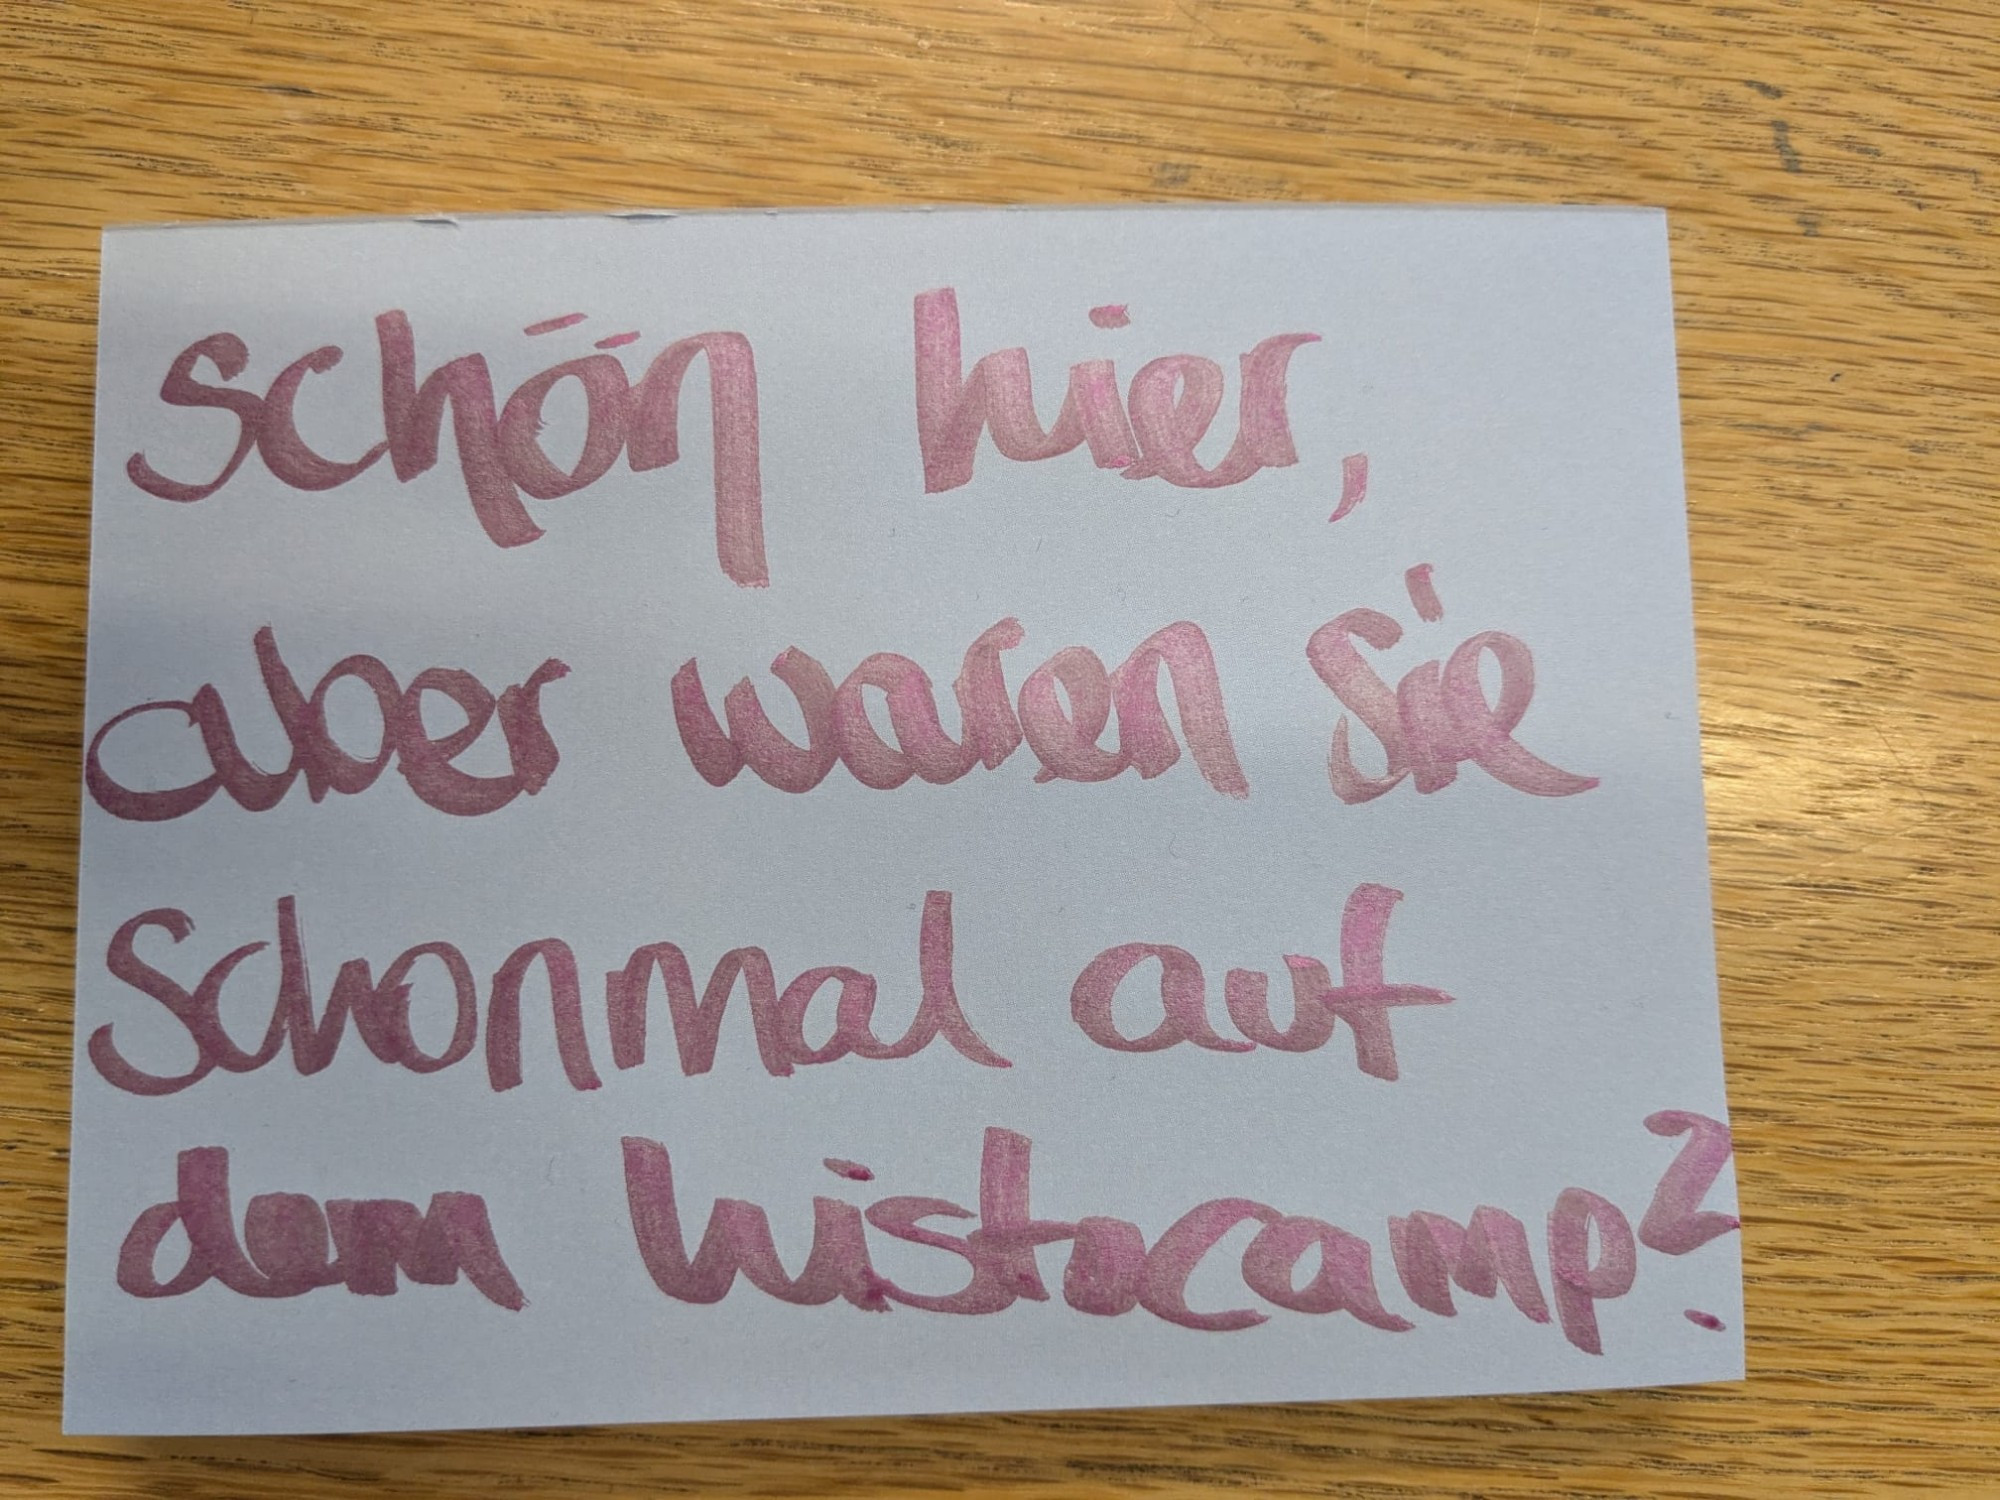 schön hier,
aber waren Sie
Schonmal auf
dem histocamp?